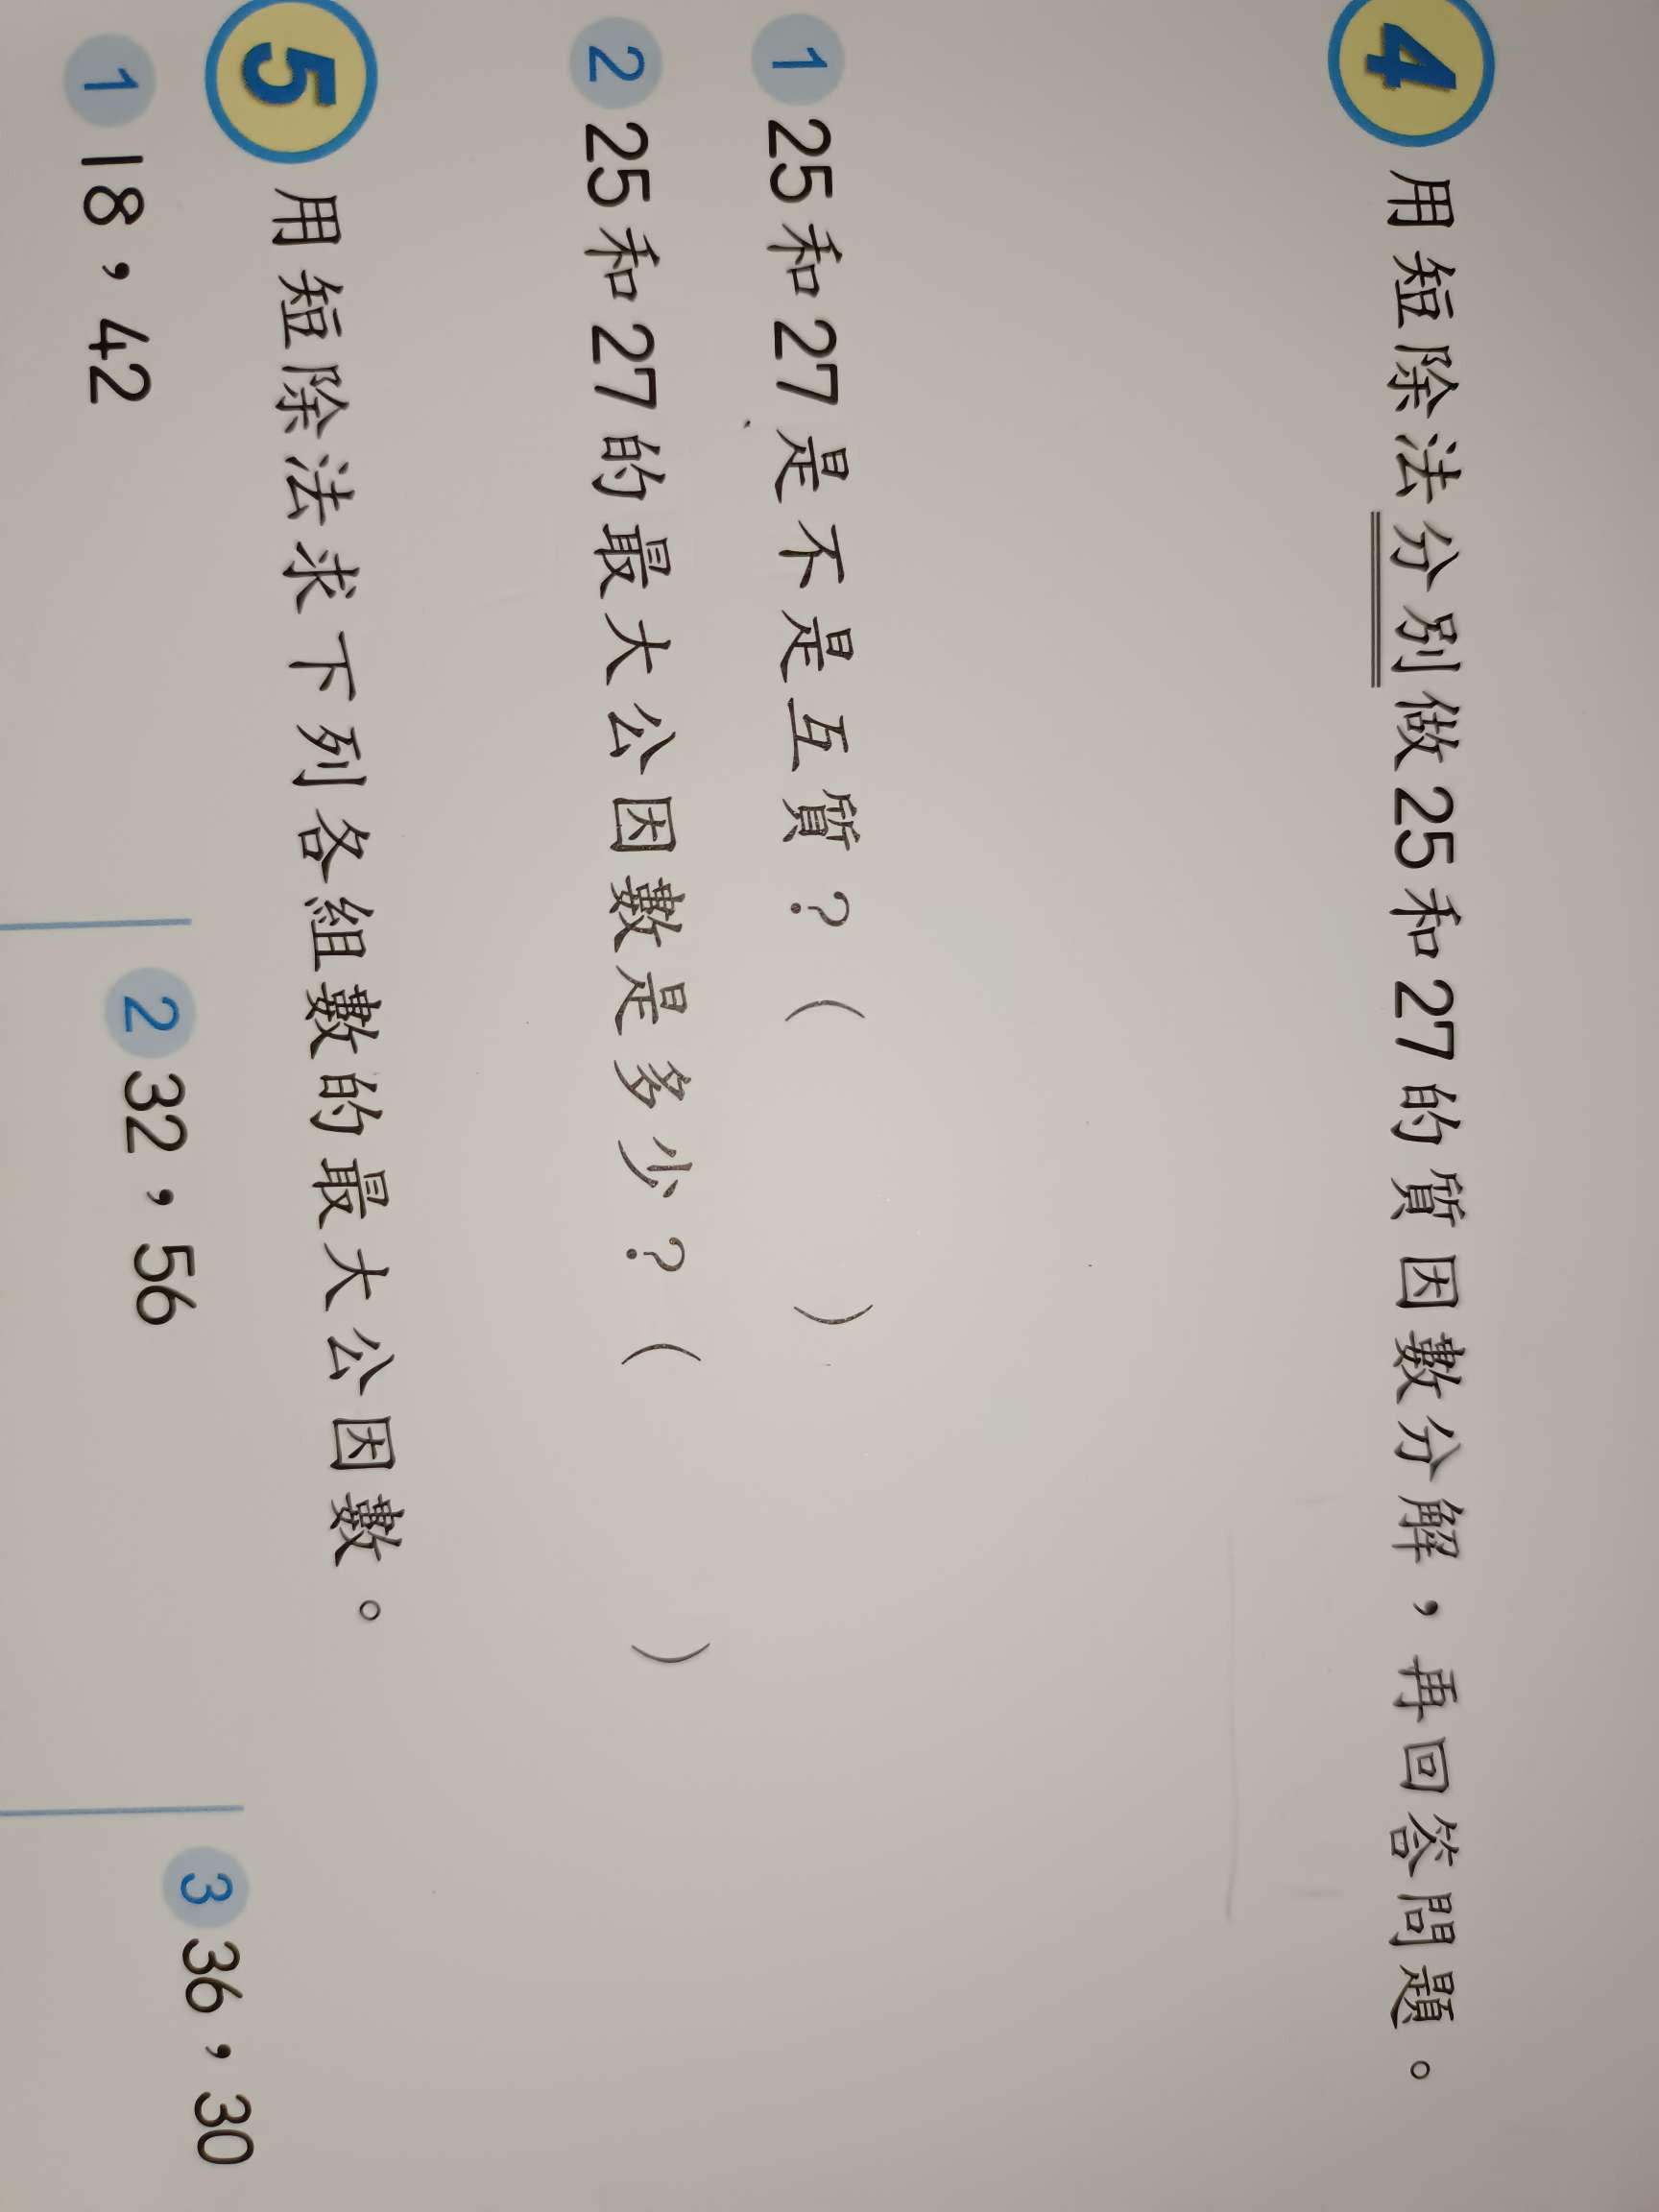 4 用短除法分別做25和27的質因數分解，再回答問題。
1 25和27是不是互質？（ ）
2 25和27的最大公因數是多少？（ ）
5 用短除法求下列各組數的最大公因數。
1 18，42
2 32，56
3 36，30